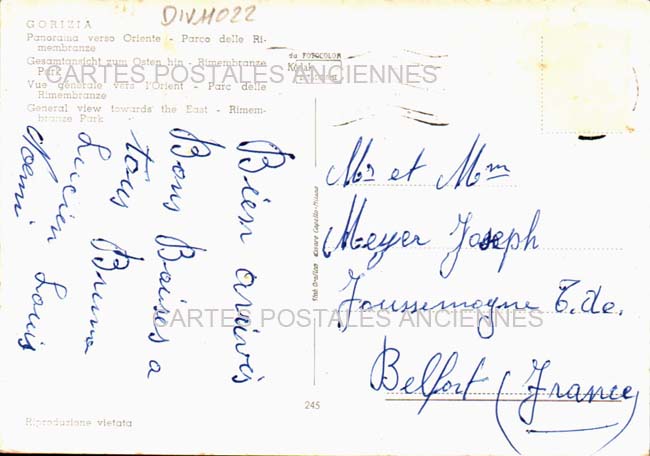 DIVH022
GORIZIA
Panorama verso Oriente - Parco delle Ri-
membranze
Gesamtansicht zum Osten hin - Rimembranze
Park
Vue générale vers l'Orient - Parc delle
Rimembranze
General view towards the East - Rimem-
branze Park
da FOTOCOLOR
Kodak
CARTES POSTALES ANCIENNES
Bien arrivés
Bons Baises a
tous Bruno
Lucien Louis
Noemi
Stab. Grafico Cesare Capello - Milano
Mr et Mm
Meyer Joseph
Foussemagne T. de.
Belfort (France)
CARTES POSTALES ANCIENNES
245
Riproduzione vietata